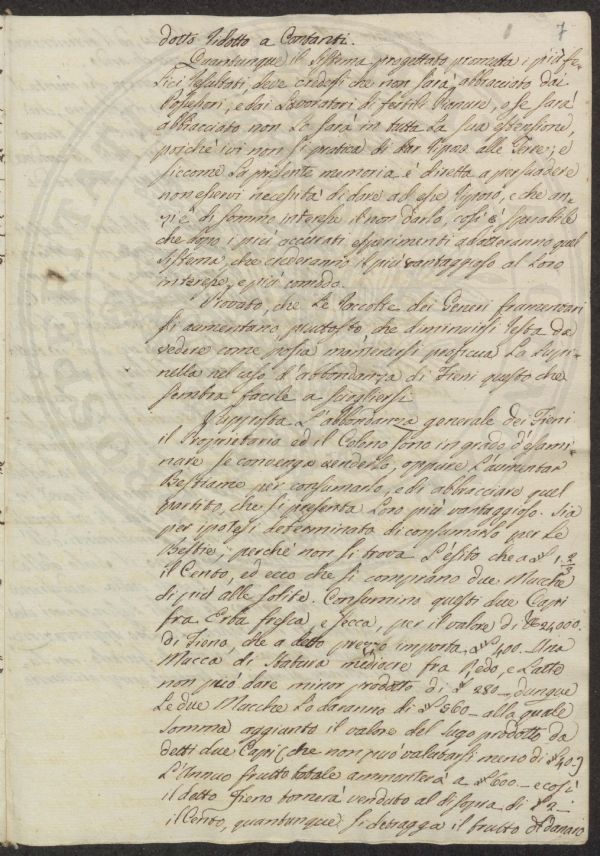 7
dotto ridotto a Contanti.
Quantunque il Sistema progettato prometta i più fe-
lici resultati, deve credersi che non sarà abbracciato dai
Possessori, e dai Lavoratori di fertili Pianure, o se sarà
abbracciato non Lo sarà in tutta La sua estenzione,
poichè ivi non si pratica di dar riposo alle Terre; e
siccome La presente memoria è diretta a persuadere
non esservi necessità di dare ad esse riposo, e che an-
zi è di sommo interesse il non darlo, così è sperabile
che dopo i più accurati esperimenti adotteranno quel
Sistema, che crederanno il più vantaggioso al Loro
interesse, e più comodo.
Provato, che Le raccolte dei Generi frumentari
si aumentano piuttosto che diminuirsi resta da
vedere come possa mantenersi proficua La Lupi-
nella nel caso d'abbondanza di Fieni questo che
sembra facile a sciogliersi.
Supposta L'abbondanza generale dei Fieni
il Proprietario ed il Colono sono in grado d'esami-
nare se convenga venderlo, oppure L'aumentar
Bestiame per consumarlo, e di abbracciare quel
partito, che si presenta Loro più vantaggioso. Sia
per ipotesi determinato di consumarlo per Le
Bestie, perchè non si trova L'esito che a 1 2/3
il Cento, ed ecco che si comprano due Mucche
di più alle solite. Consumino questi due Capi
fra Erba fresca, e secca, per il valore di 24000.
di Fieno, che a detto prezzo importa 400. Una
Mucca di statura mediocre fra redo, e Latte
non può dare minor prodotto di 280 dunque
Le due Mucche Lo daranno di 560 alla quale
somma aggiunto il valore del sugo prodotto da
detti due Capi (che non può valutarsi meno di 40)
L'Annuo frutto totale ammonterà a 600 e così
il detto Fieno tornerà venduto al di sopra di
il Cento, quantunque si detragga il frutto del danaro